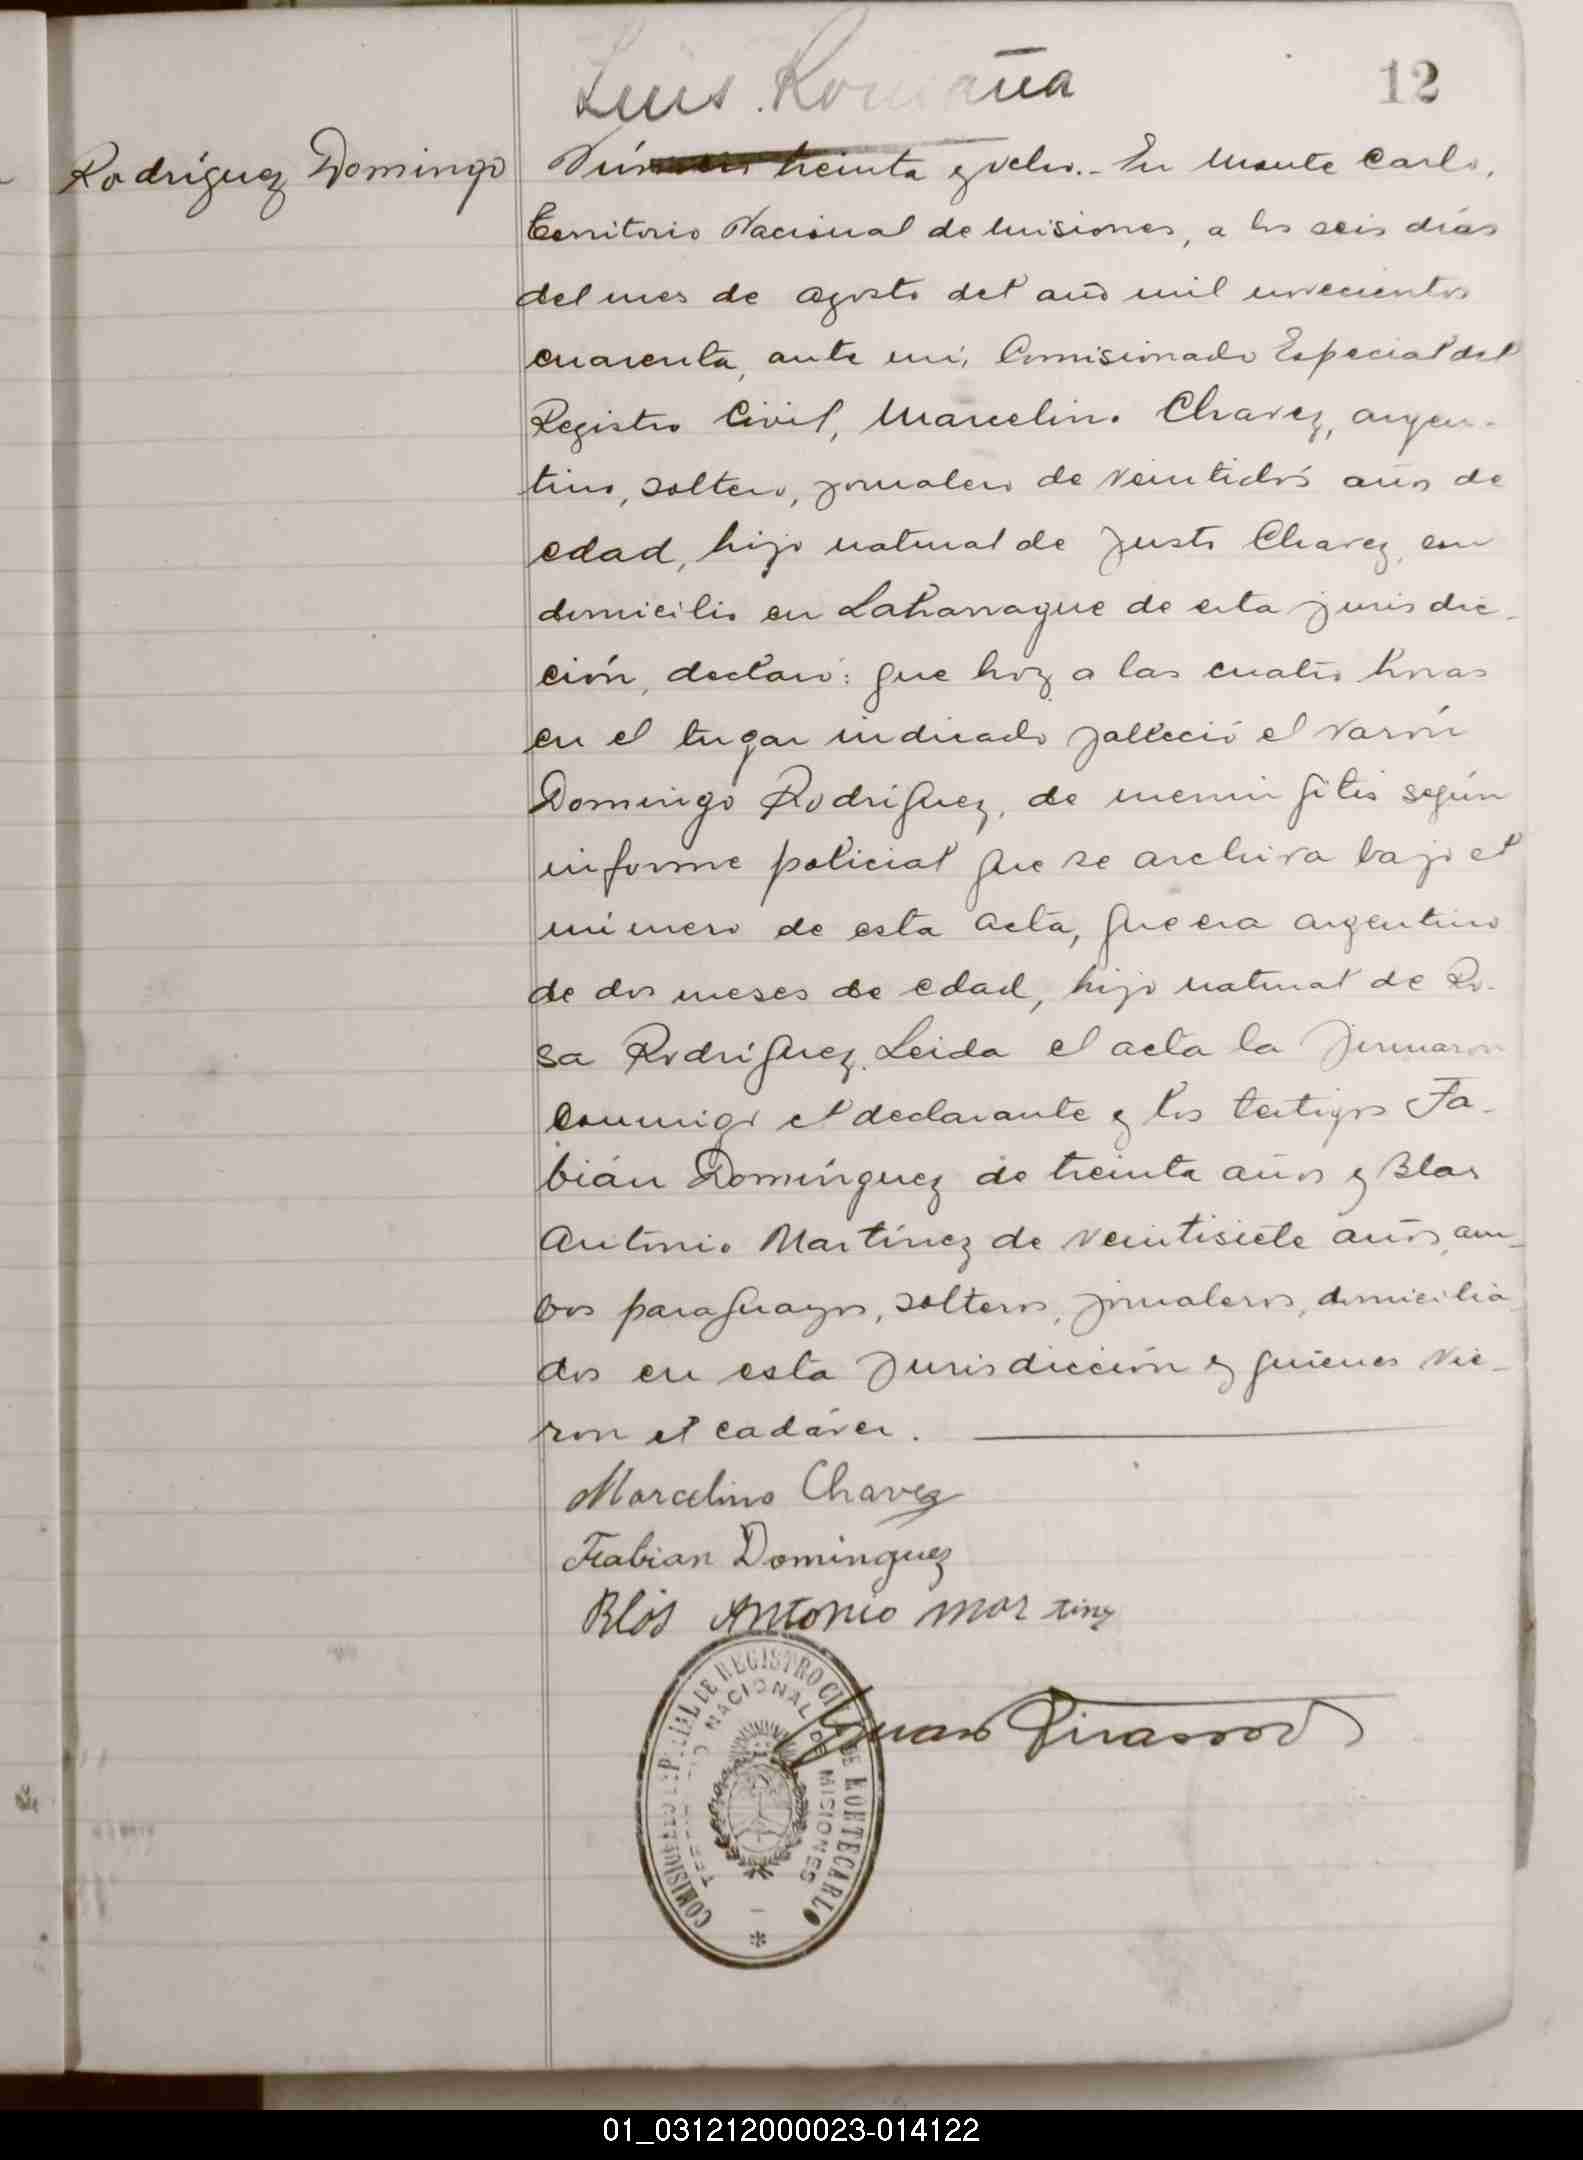 Luis Romaña
12
Rodríguez Domingo
Número treinta y ocho.- En Monte Carlo,
Territorio Nacional de Misiones, a los seis días
del mes de agosto del año mil novecientos
cuarenta, ante mí, Comisionado Especial del
Registro Civil, Marcelino Chavez, argen-
tino, soltero, jornalero de veintidós años de
edad, hijo natural de Justo Chavez, con
domicilio en Laharrague de esta jurisdic-
ción, declaró: que hoy a las cuatro horas
en el lugar indicado falleció el varón
Domingo Rodríguez, de meningitis según
informe policial que se archiva bajo el
número de esta acta, que era argentino
de dos meses de edad, hijo natural de Ro-
sa Rodríguez. Leida el acta la firmaron
conmigo el declarante y los testigos Fa-
bián Domínguez de treinta años y Blas
Antonio Martínez de veintisiete años, am-
bos paraguayos, solteros, jornaleros, domicilia-
dos en esta jurisdicción y quienes vie-
ron el cadáver.
Marcelino Chavez
Fabian Dominguez
Blás Antonio Martinz
COMISIONADO ESPECIAL DE REGISTRO CIVIL DE MONTECARLO
TERRITORIO NACIONAL DE MISIONES
01_031212000023-014122